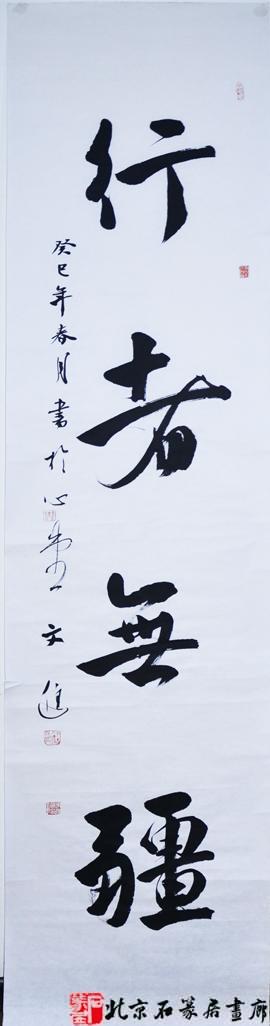 行者無疆
癸巳年春月書於心
文進
北京石篆居畫廊